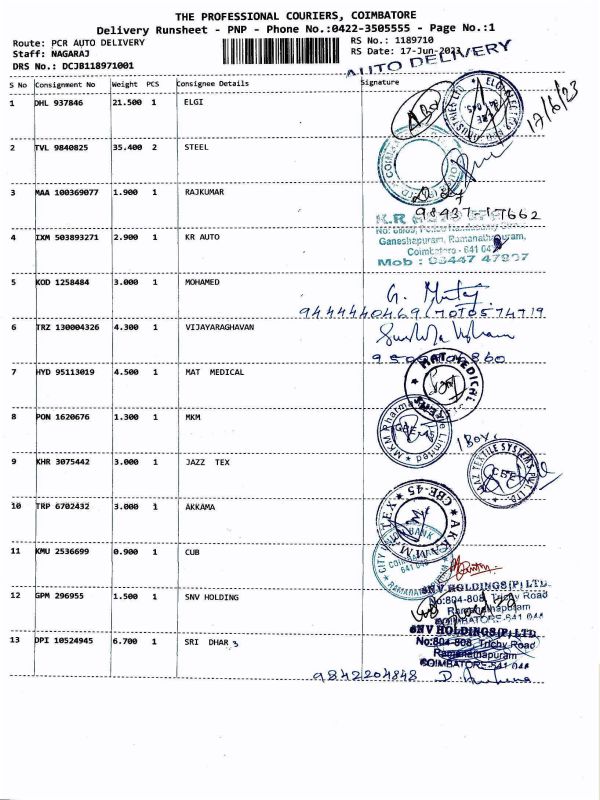 THE PROFESSIONAL COURIERS, COIMBATORE
Delivery Runsheet - PNP - Phone No.:0422-3505555 - Page No.:1
Route: PCR AUTO DELIVERY RS No.: 1189710
Staff: NAGARAJ RS Date: 17-Jun-2023
DRS No.: DCJB118971001 AUTO DELIVERY
S No Consignment No Weight PCS Consignee Details Signature
1 DHL 937846 21.500 1 ELGI
17/6/23
2 TVL 9840825 35.400 2 STEEL
3 MAA 100369077 1.900 1 RAJKUMAR
98437-17662
K.R
4 IXM 503893271 2.900 1 KR AUTO
Ganeshapuram, Ramanathapuram,
Coimbatore - 641 045
Mob : 98447 47907
5 KOD 1258484 3.000 1 MOHAMED
9444440469/7010574719
6 TRZ 130004326 4.300 1 VIJAYARAGHAVAN
7 HYD 95113019 4.500 1 MAT MEDICAL
MAT MEDICAL
8 PON 1620676 1.300 1 MKM
MKM Pharma Limited
CBE-45
1 Box
9 KHR 3075442 3.000 1 JAZZ TEX
JAAZ TEXTILE SYSTEMS PVT. LTD.
CBE
10 TRP 6702432 3.000 1 AKKAMA
CBE-45
11 KMU 2536699 0.900 1 CUB
CITY UNION BANK
COIMBATORE
641 045
12 GPM 296955 1.500 1 SNV HOLDING
SNV HOLDINGS(P) LTD.
No:804-808, Trichy Road
Ramanathapuram
COIMBATORE-641 044
13 DPI 10524945 6.700 1 SRI DHAR
SNV HOLDINGS(P) LTD.
No:804-808, Trichy Road
Ramanathapuram
COIMBATORE-641 044
9842204848